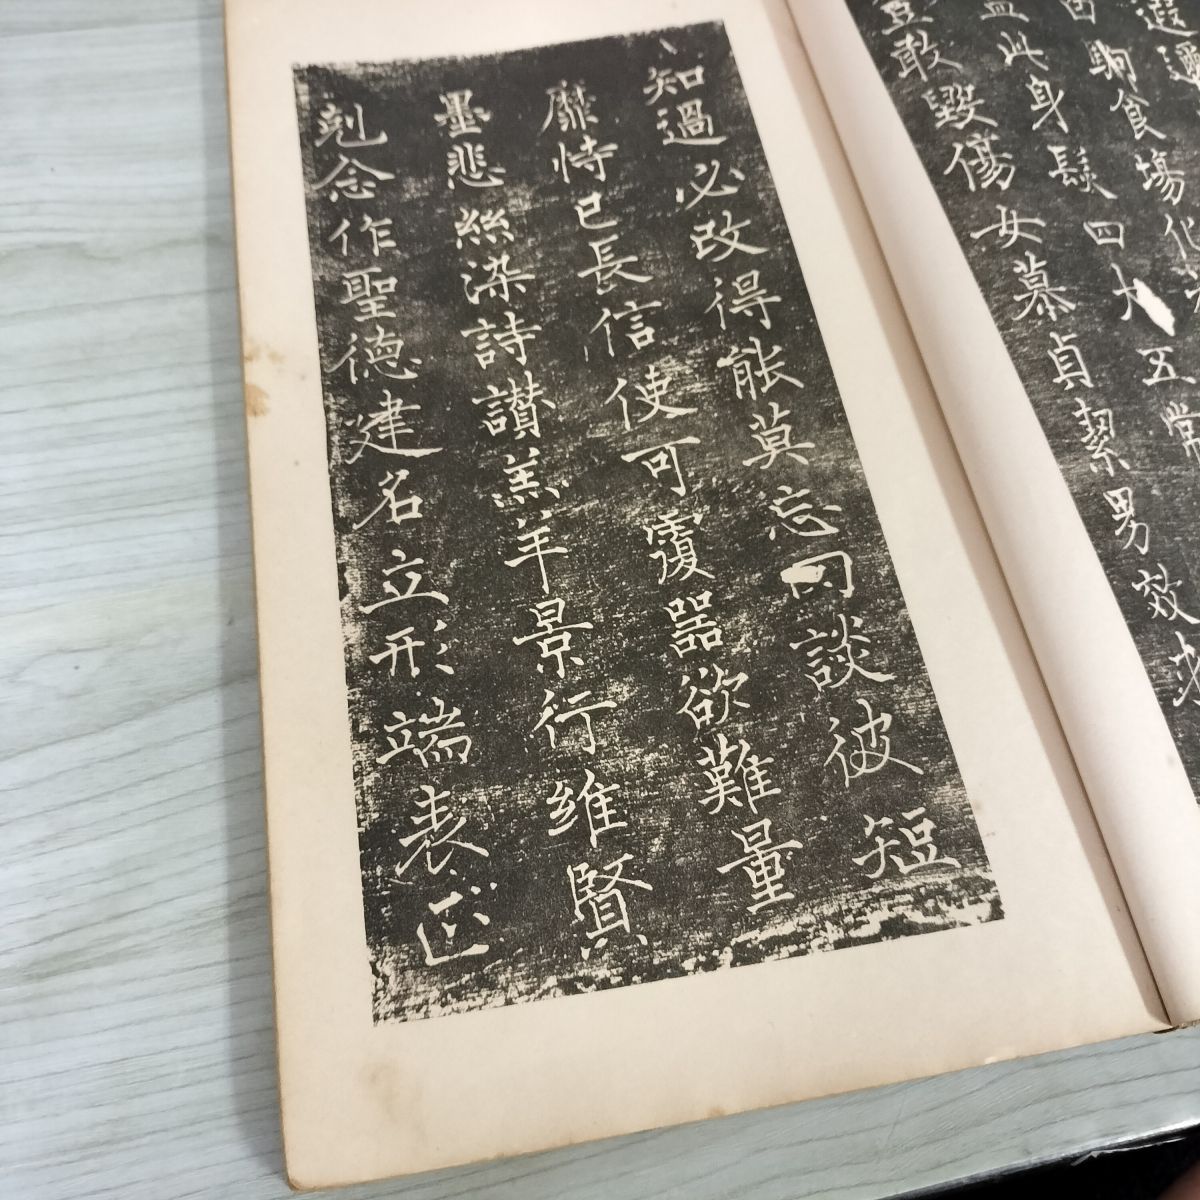 遐邇
白駒食場化
蓋此身髮四大五常
豈敢毀傷女慕貞絜男效才
知過必改得能莫忘罔談彼短
靡恃己長信使可覆器欲難量
墨悲絲染詩讚羔羊景行維賢
剋念作聖德建名立形端表正